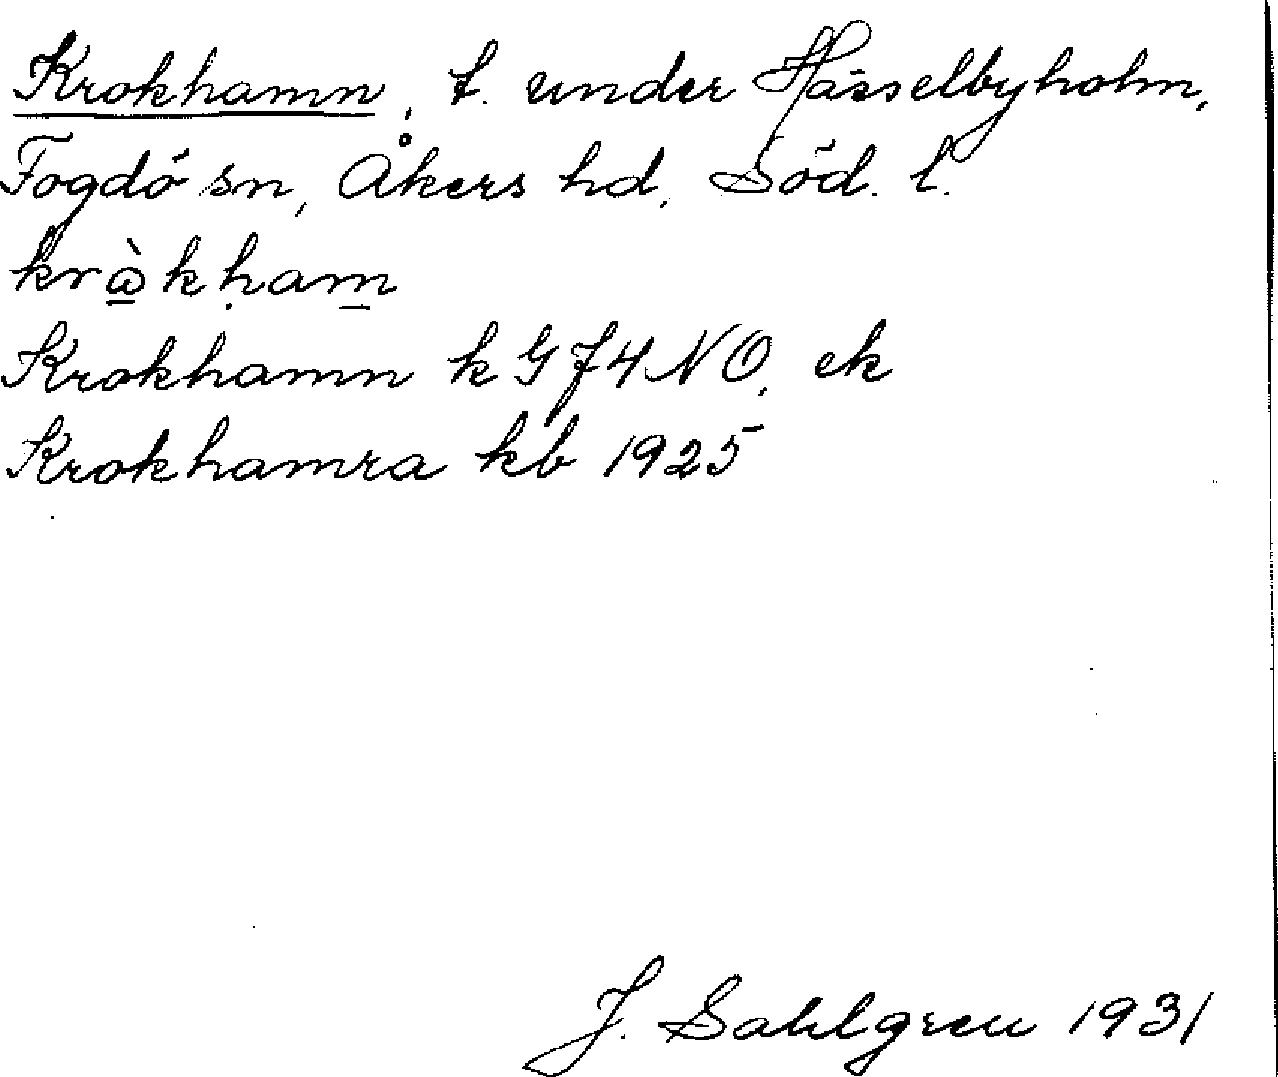 Krokhamn, t. under Hässelbyholm,
Fogdö sn, Åkers hd, Söd. l.
krò̲kḥam̲
Krokhamn k G J4 NO, ek
Krokhamra kb 1925
J. Sahlgren 1931